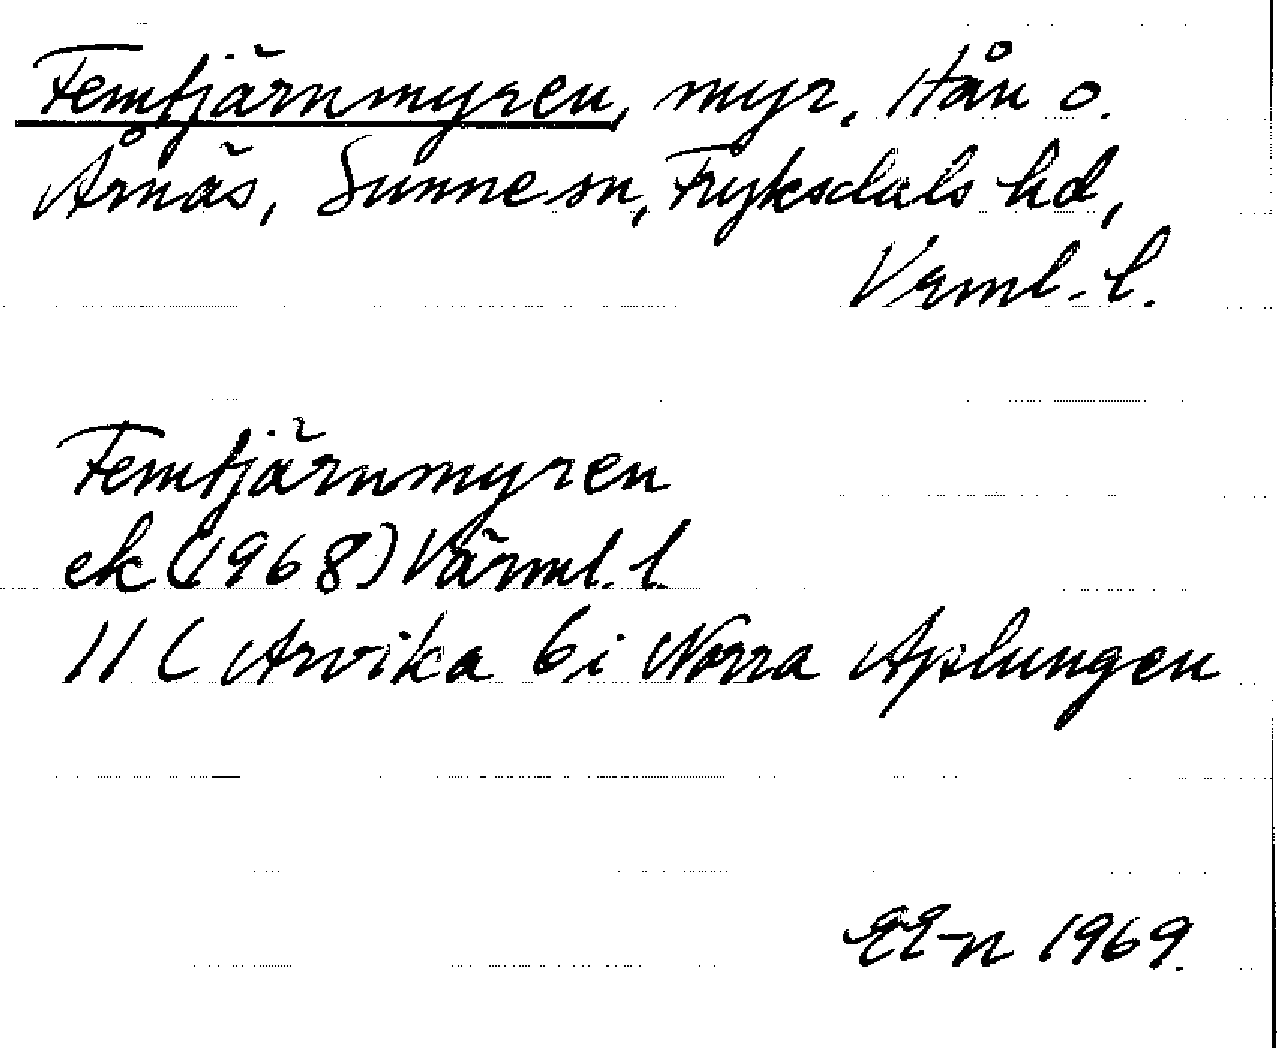 Femtjärnmyren, myr, Hån o.
Årnäs, Sunne sn, Fryksdals hd,
Vrml. l.
Femtjärnmyren
ek (1968) Värml. l.
11 C Arvika 6i Norra Aplungen
EE-n 1969.